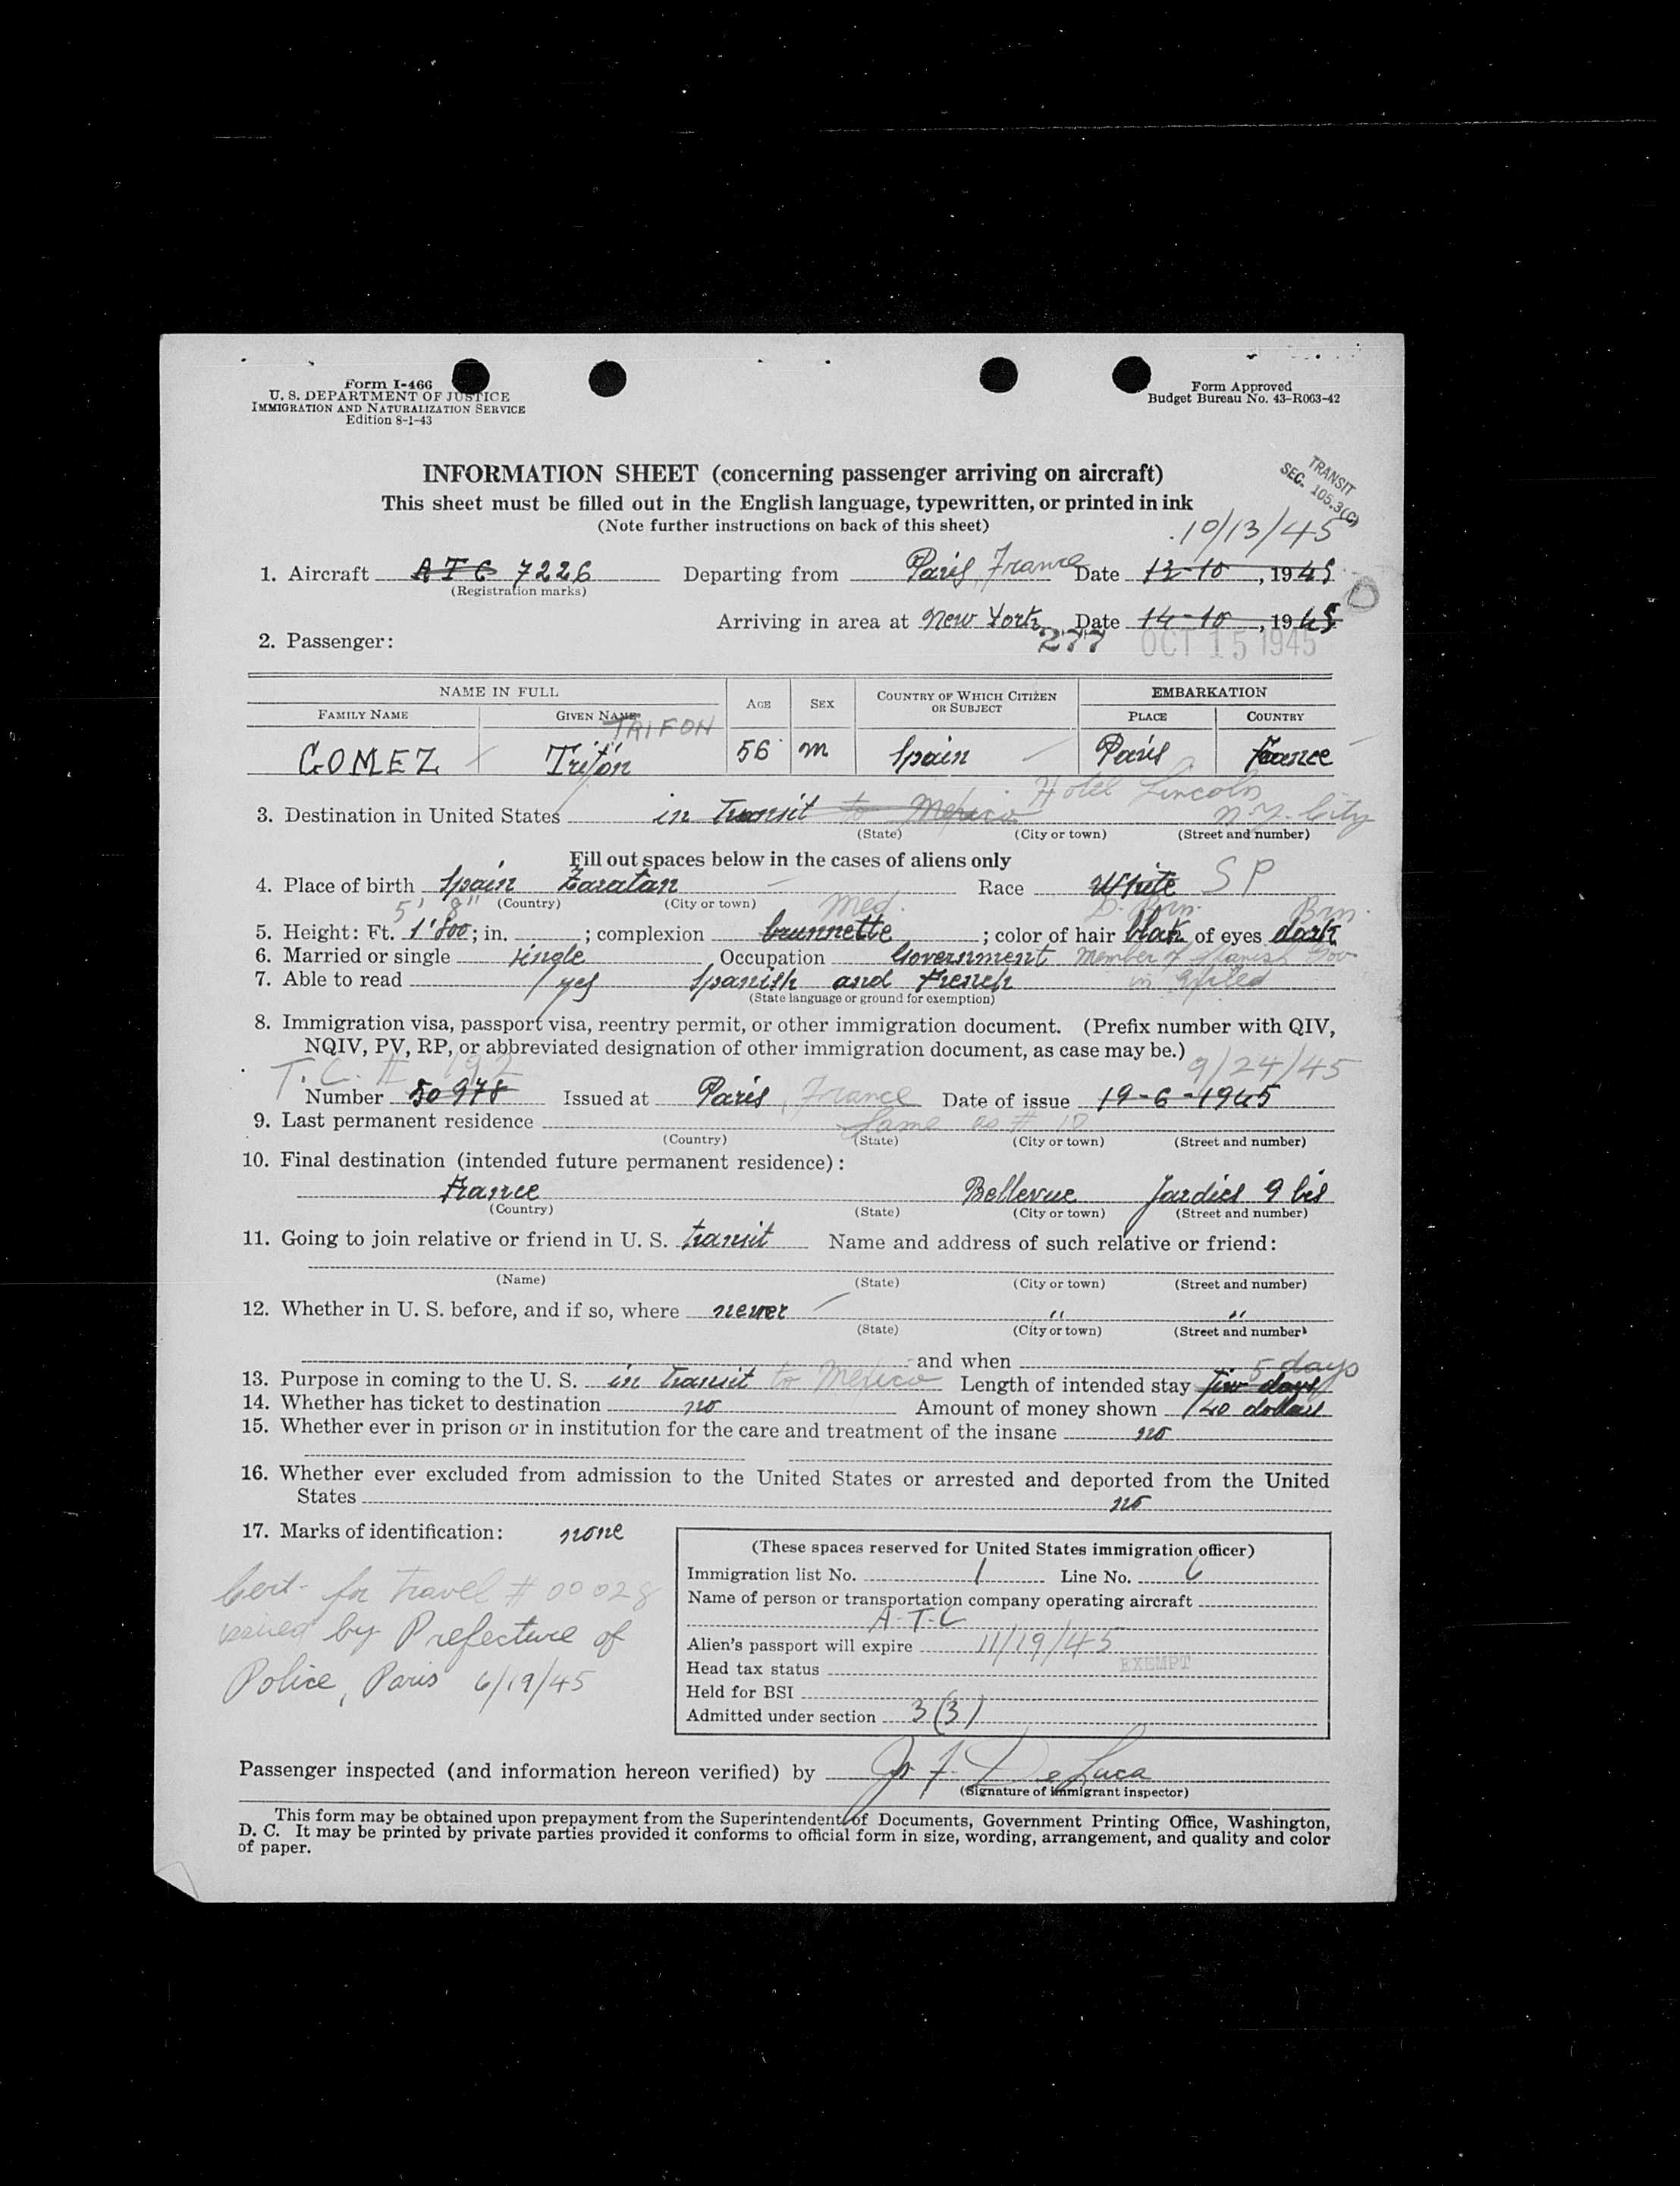 Form I-466
U. S. DEPARTMENT OF JUSTICE
IMMIGRATION AND NATURALIZATION SERVICE
Edition 8-1-43
Form Approved
Budget Bureau No. 43-R063-42
INFORMATION SHEET (concerning passenger arriving on aircraft)
This sheet must be filled out in the English language, typewritten, or printed in ink
(Note further instructions on back of this sheet)
TRANSIT
SEC. 105.3(C)
10/13/45
1. Aircraft ATC 7226 Departing from Paris, France Date 12-10, 1945
(Registration marks)
Arriving in area at New York Date 14-10, 1945
2. Passenger: 277 OCT 15 1945
NAME IN FULL AGE SEX COUNTRY OF WHICH CITIZEN OR SUBJECT EMBARKATION
FAMILY NAME GIVEN NAME PLACE COUNTRY
TRIFON
GOMEZ Trifón 56 m Spain Paris France
Hotel Lincoln
3. Destination in United States in transit to Mexico N.Y. City
(State) (City or town) (Street and number)
Fill out spaces below in the cases of aliens only
4. Place of birth Spain Zaratan Race White SP
(Country) (City or town)
5' 8" Med. D. Brn. Brn.
5. Height: Ft. 1'800; in. ; complexion brunnette; color of hair black of eyes dark
6. Married or single single Occupation Government Member of Spanish Gov
7. Able to read yes Spanish and French in Exiled
(State language or ground for exemption)
8. Immigration visa, passport visa, reentry permit, or other immigration document. (Prefix number with QIV,
NQIV, PV, RP, or abbreviated designation of other immigration document, as case may be.)
T. C. # 192 9/24/45
Number 50978 Issued at Paris, France Date of issue 19-6-1945
9. Last permanent residence Same as # 10
(Country) (State) (City or town) (Street and number)
10. Final destination (intended future permanent residence):
France Bellevue Jardies 9 bis
(Country) (State) (City or town) (Street and number)
11. Going to join relative or friend in U. S. transit Name and address of such relative or friend:
(Name) (State) (City or town) (Street and number)
12. Whether in U. S. before, and if so, where never " "
(State) (City or town) (Street and number)
and when
5 days
13. Purpose in coming to the U. S. in transit to Mexico Length of intended stay few days
14. Whether has ticket to destination no Amount of money shown 140 dollars
15. Whether ever in prison or in institution for the care and treatment of the insane no
16. Whether ever excluded from admission to the United States or arrested and deported from the United
States no
17. Marks of identification: none
Cert. for travel # 00028
issued by Prefecture of
Police, Paris 6/19/45
(These spaces reserved for United States immigration officer)
Immigration list No. 1 Line No. 6
Name of person or transportation company operating aircraft
A-T-C
Alien's passport will expire 11/19/45
Head tax status EXEMPT
Held for BSI
Admitted under section 3(3)
Passenger inspected (and information hereon verified) by De Luca
(Signature of immigrant inspector)
This form may be obtained upon prepayment from the Superintendent of Documents, Government Printing Office, Washington,
D. C. It may be printed by private parties provided it conforms to official form in size, wording, arrangement, and quality and color
of paper.